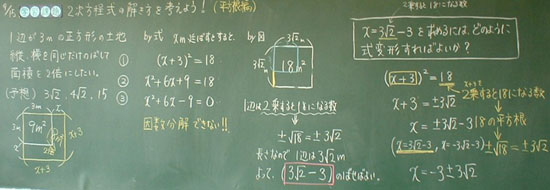 2次方程式の解き方を考えよう! (平方根編)
1辺が3mの正方形の土地
縦、横を同じだけのばして
面積を2倍にしたい。
(予想) 3√2, 4√2, 15
3m
x
3m
9m²
x
x+3
x+3
by式 xmのばすとすると、
① (x+3)²=18
② x²+6x+9=18
③ x²+6x-9=0
因数分解できない!!
by図
3√2
3√2
18m²
1辺は2乗すると18になる数
±√18=±3√2
長さなので1辺は3√2m
よって、(3√2-3)mのばせばよい。
x=3√2-3を求めるには、どのように
式変形すればよいか?
(x+3)²=18
2乗すると18になる数
x+3=±3√2
18の平方根
x=±3√2-3
±√18=±3√2
(x=3√2-3, x=-3√2-3)
x=-3±3√2